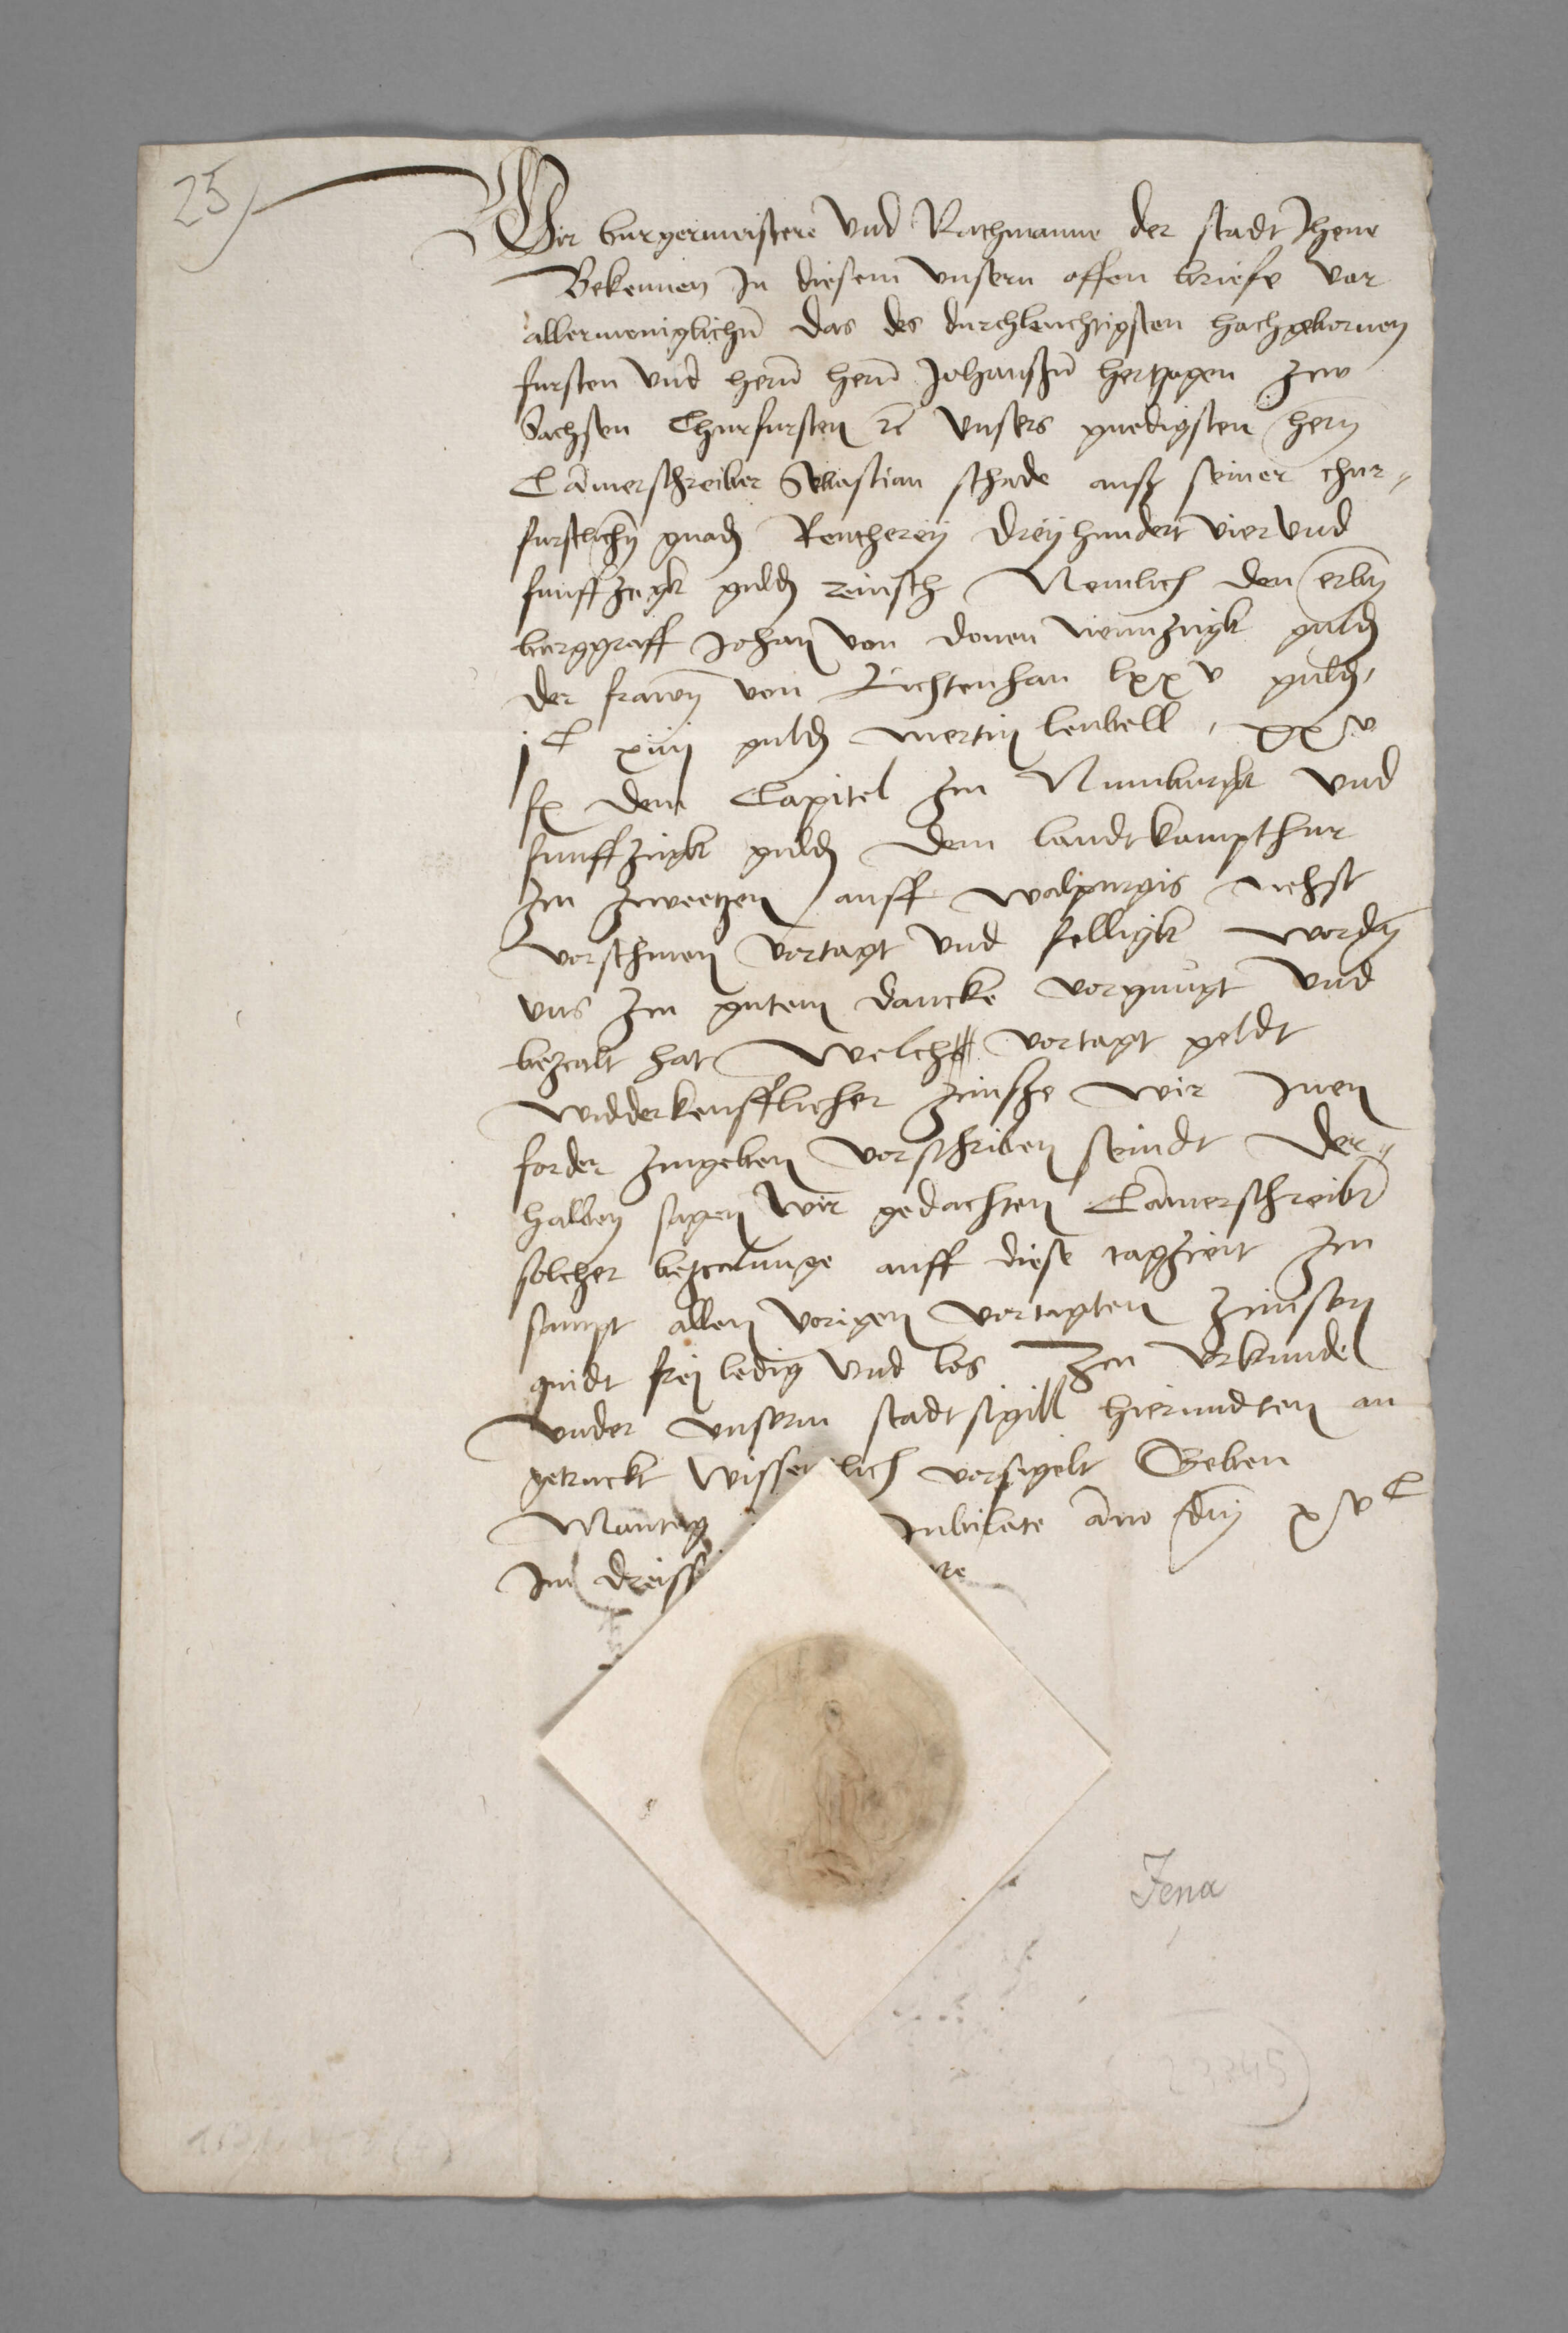 25
Wir burgermeistere Vnd Rathmanne der stadt Jhene
Bekennen In diesem vnsern offen briefe vor
allermeniglichn̄ das des durchleuchtigsten hochgebornen
fursten vnd hern̄ hern̄ Johanssn̄ hertzogen zew
Sachssen Churfursten ꝛc vnsers gnedigsten hern
Cam̄erschreiber Sebastian schade aussz seiner chur„
furstlichn̄ gnadn̄ Rentherey dreyhundert vier vnd
funffzigk guldn̄ reinisch Nemlich den erbn̄
burggraff Johan von donen neunzigk guldn̄
der frawen von Lichtenhan lxxv guldn̄,
jC xiiij guldn̄ mertin leubell, xxv
fl dem Capitel zu Numburgk vnd
funffzigk guldn̄ dem landtkompthur
zu zweetzen / auff walpurgis nehst
vorschinen vortagt vnd felligk wordn̄
vns zu gutem dancke vorgnugt vnd
bezcalt hat Welch vortagt geldt
widderkeufflicher zinsze wir Inen
forder zugeben vorschriben seindt Der„
halben sagen wir gedachten Cam̄erschreibr̄
solcher bezcalunge auff diese tagzceit zu
sampt allen vorigen vortagten zcinsen
quidt frey ledig vnd los Zu vrkunde
vnder vnserm stadt sigill hierundten an
getruckt wissentlich vorsigelt Geben
Montag Jubilate an̄o dnj̄ xvC
Im dreiss
Jena